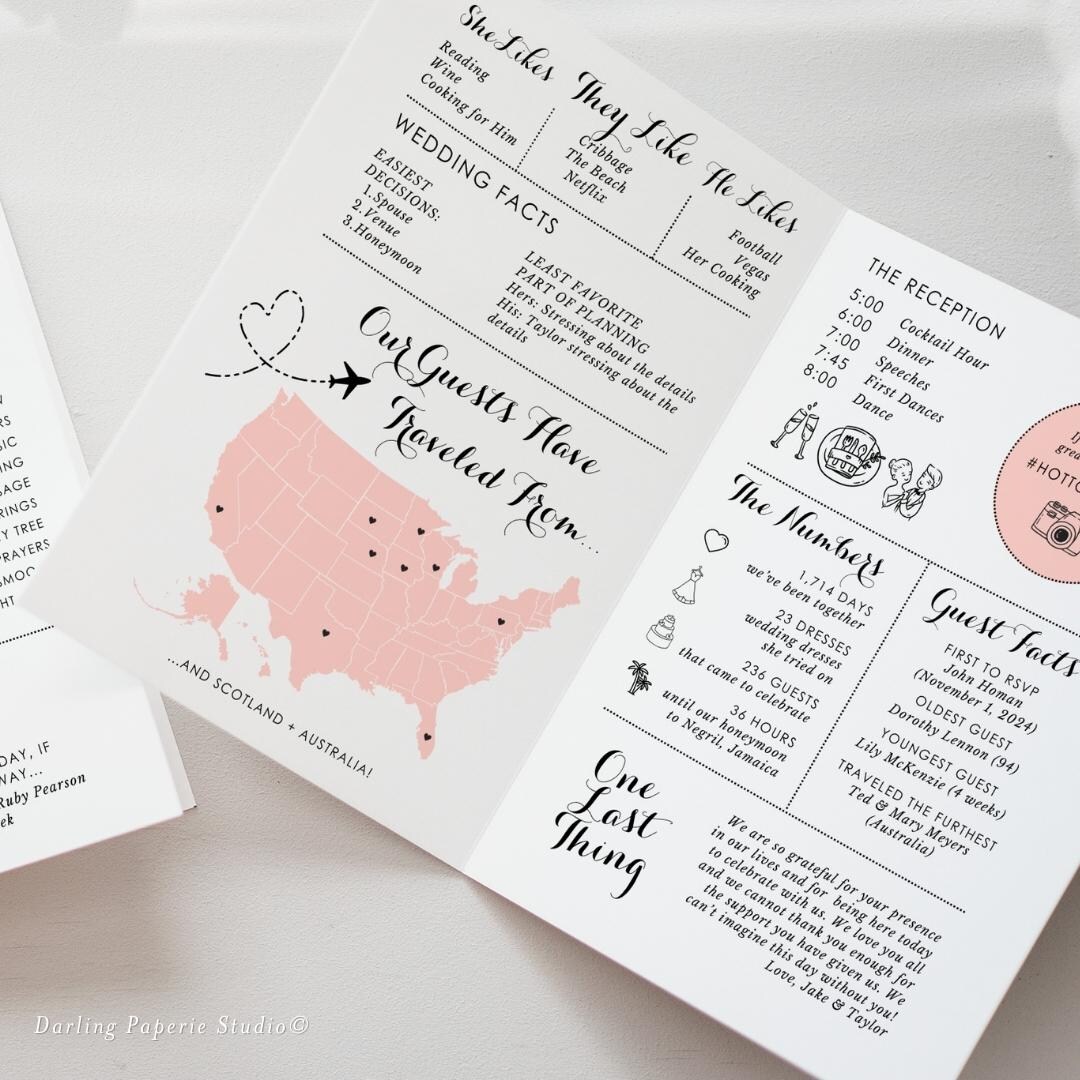 She Likes
Reading
Wine
Cooking for Him
They Like
Cribbage
The Beach
Netflix
He Likes
Football
Vegas
Her Cooking
WEDDING FACTS
EASIEST
DECISIONS:
1. Spouse
2. Venue
3. Honeymoon
LEAST FAVORITE
PART OF PLANNING
Hers: Stressing about the details
His: Taylor stressing about the
details
Our Guests Have
Traveled From...
...AND SCOTLAND + AUSTRALIA!
THE RECEPTION
5:00 Cocktail Hour
6:00 Dinner
7:00 Speeches
7:45 First Dances
8:00 Dance
#HOTTO
The Numbers
1,714 DAYS
we've been together
23 DRESSES
wedding dresses
she tried on
236 GUESTS
that came to celebrate
36 HOURS
until our honeymoon
to Negril, Jamaica
Guest Facts
FIRST TO RSVP
John Homan
(November 1, 2024)
OLDEST GUEST
Dorothy Lennon (94)
YOUNGEST GUEST
Lily McKenzie (4 weeks)
TRAVELED THE FURTHEST
Ted & Mary Meyers
(Australia)
One
Last
Thing
We are so grateful for your presence
in our lives and for being here today
to celebrate with us. We love you all
and we cannot thank you enough for
the support you have given us. We
can't imagine this day without you!
Love, Jake & Taylor
RS
SIC
ING
SAGE
RINGS
Y TREE
PRAYERS
SMOO
HT
DAY, IF
WAY...
Ruby Pearson
ek
Darling Paperie Studio©